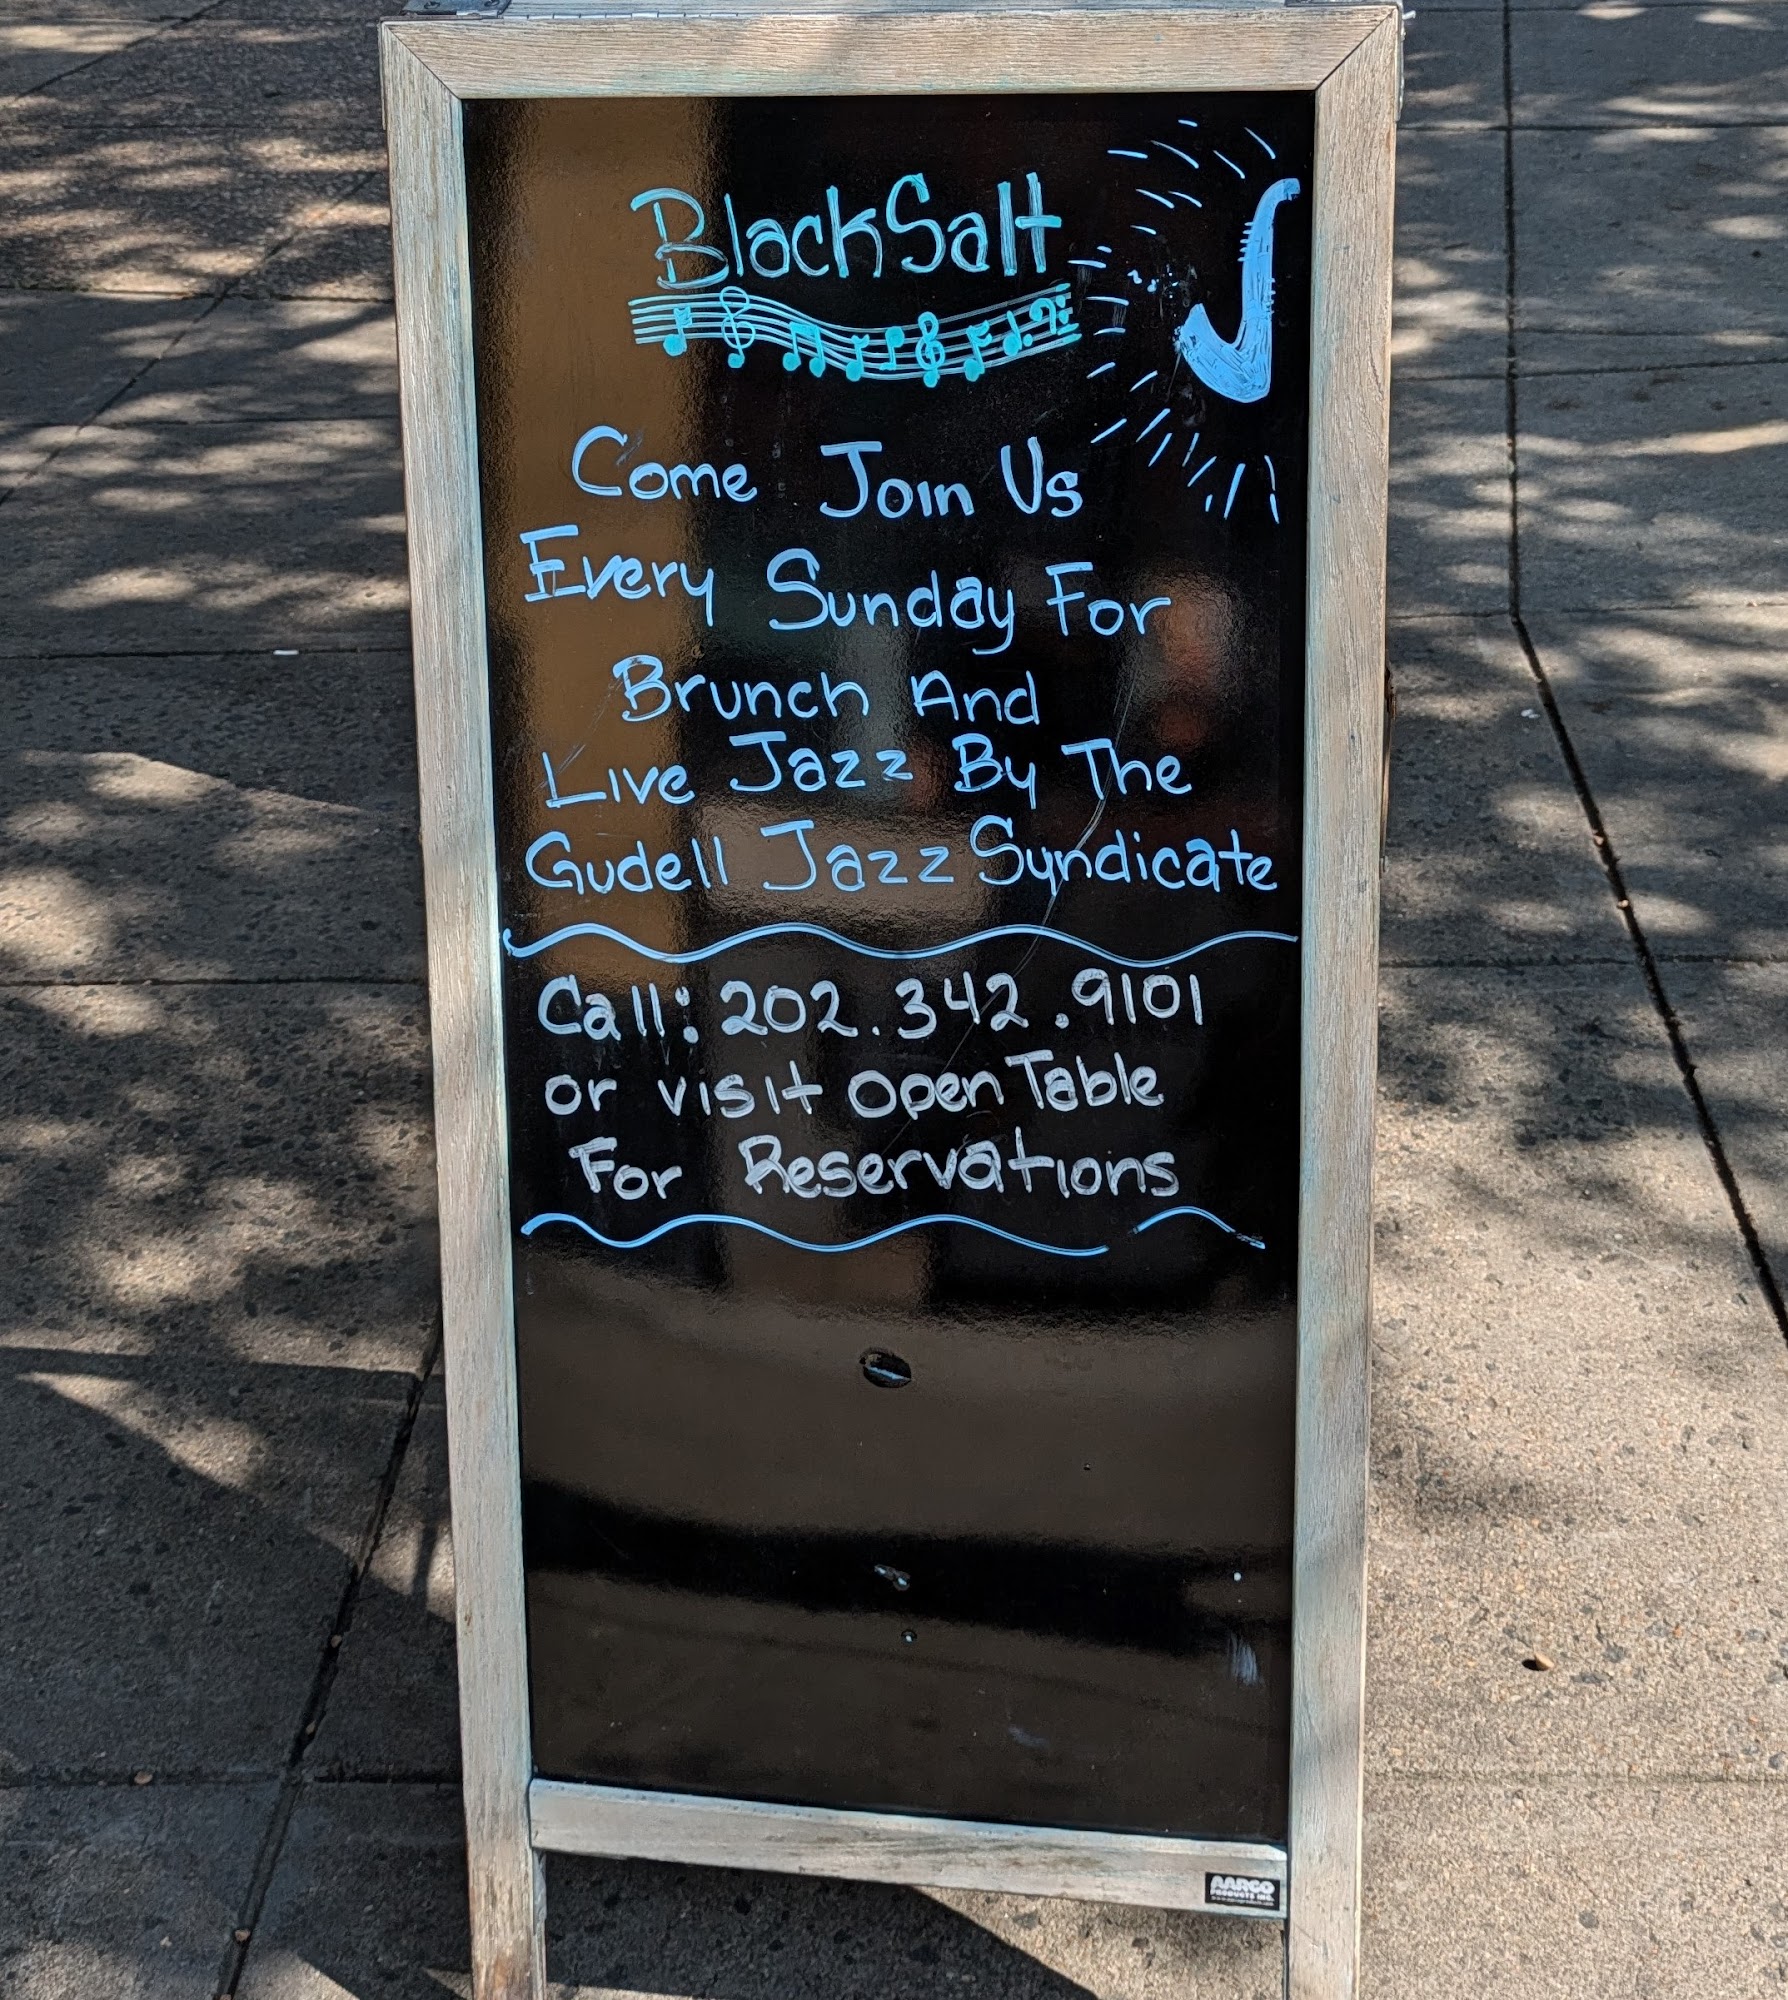 BlackSalt
Come Join Us
Every Sunday For
Brunch And
Live Jazz By The
Gudell Jazz Syndicate
Call: 202.342.9101
or visit Open Table
For Reservations
AARCO
PRODUCTS INC.